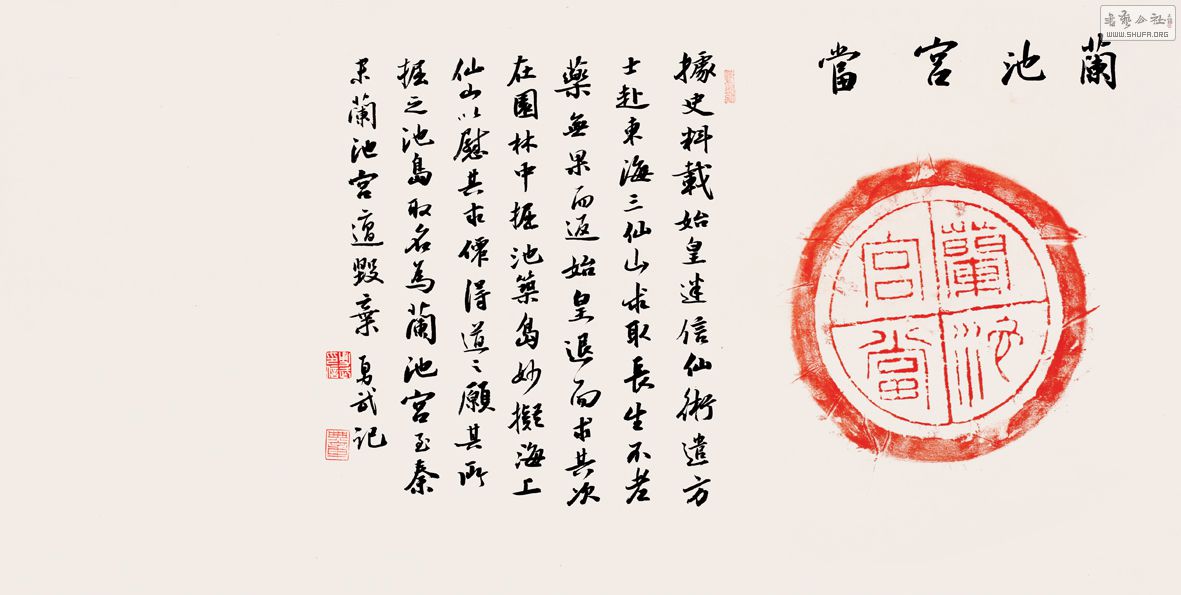 蘭池宮當
蘭池宮當
據史料載始皇迷信仙術遣方
士赴東海三仙山求取長生不老
藥無果而返始皇退而求其次
在園林中掘池築島妙擬海上
仙山以慰其求僊得道之願其所
掘之池島取名為蘭池宮至秦
末蘭池宮遭毀棄
武記
书艺公社
WWW.SHUFA.ORG